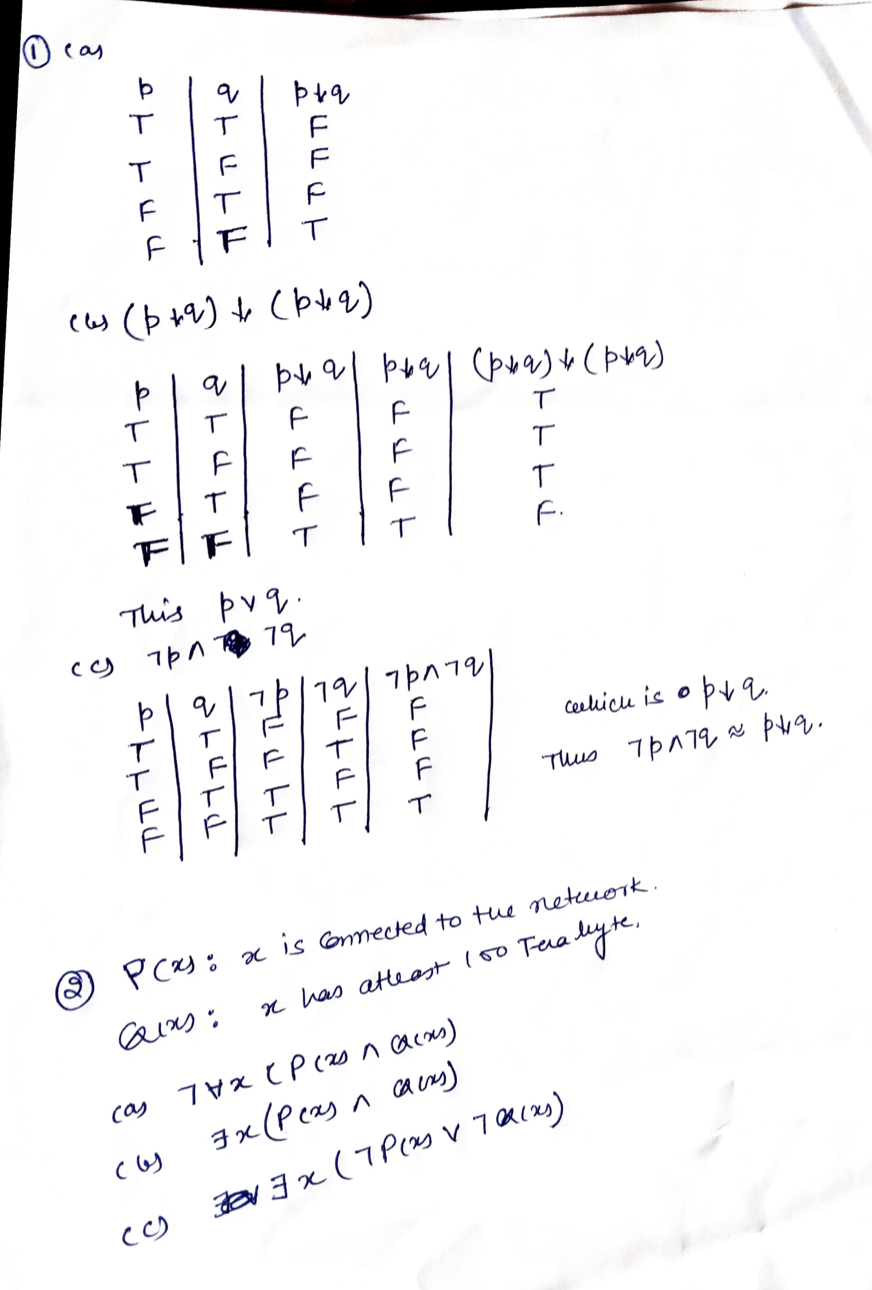 ① (a)
p | q | p↓q
T | T | F
T | F | F
F | T | F
F | F | T
(b) (p↓q) ↓ (p↓q)
p | q | p↓q | p↓q | (p↓q)↓(p↓q)
T | T | F | F | T
T | F | F | F | T
F | T | F | F | T
F | F | T | T | F.
This p∨q.
(c) ¬p∧ ¬q
p | q | ¬p | ¬q | ¬p∧¬q
T | T | F | F | F
T | F | F | T | F
F | T | T | F | F
F | F | T | T | T
which is p↓q.
Thus ¬p∧¬q ≈ p↓q.
② P(x): x is Connected to the network.
Q(x): x has atleast 100 Terabyte.
(a) ¬∀x (P(x) ∧ Q(x))
(b) ∃x(P(x) ∧ Q(x))
(c) ∃x(¬P(x) ∨ ¬Q(x))